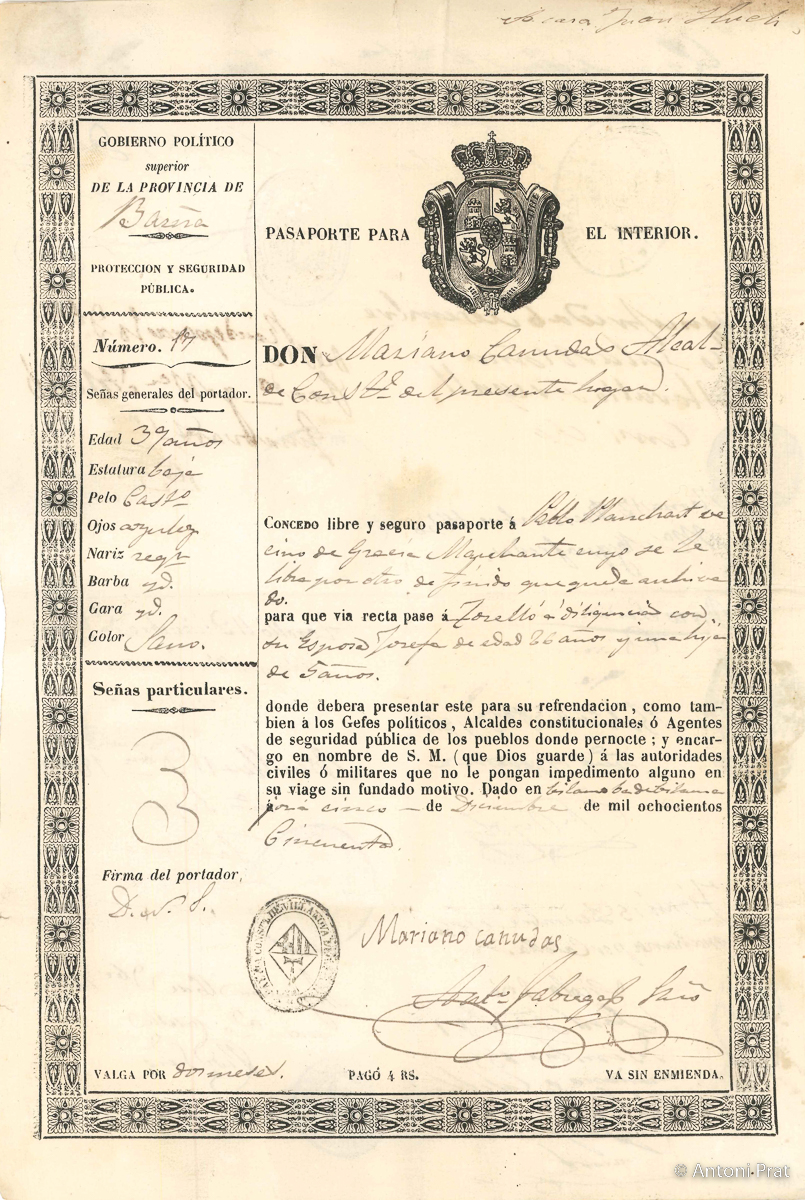 Juan
GOBIERNO POLÍTICO
superior
DE LA PROVINCIA DE
Barna
PROTECCION Y SEGURIDAD
PÚBLICA.
Número. 17
Señas generales del portador.
Edad 39 años
Estatura baja
Pelo Casto
Ojos azules
Nariz regr
Barba yd.
Cara yd.
Color Sano.
Señas particulares.
Firma del portador,
PASAPORTE PARA EL INTERIOR.
DON Mariano Canudas Alcal-
de Constl. del presente hogar.
CONCEDO libre y seguro pasaporte á Pablo Planchart ve
cino de Gracia Marchante cuyo se le
libra por otro de finido que queda archiva
do.
para que via recta pase á Torelló á diligencias con
su Esposa Josefa de edad 26 años y una hija
de 5 años.
donde debera presentar este para su refrendacion, como tam-
bien à los Gefes políticos, Alcaldes constitucionales ó Agentes
de seguridad pública de los pueblos donde pernocte; y encar-
go en nombre de S. M. (que Dios guarde) á las autoridades
civiles ó militares que no le pongan impedimento alguno en
su viage sin fundado motivo. Dado en
á cinco de Diciembre de mil ochocientos
Cincuenta.
Mariano canudas
Anto. Fabregas Srio
VALGA POR dos meses.
PAGÓ 4 RS.
VA SIN ENMIENDA.
© Antoni Prat